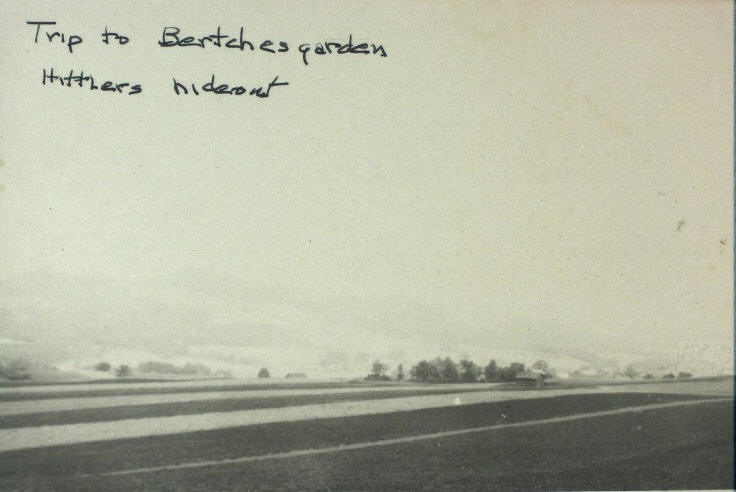 Trip to Bertchesgarden
Hittlers hideout